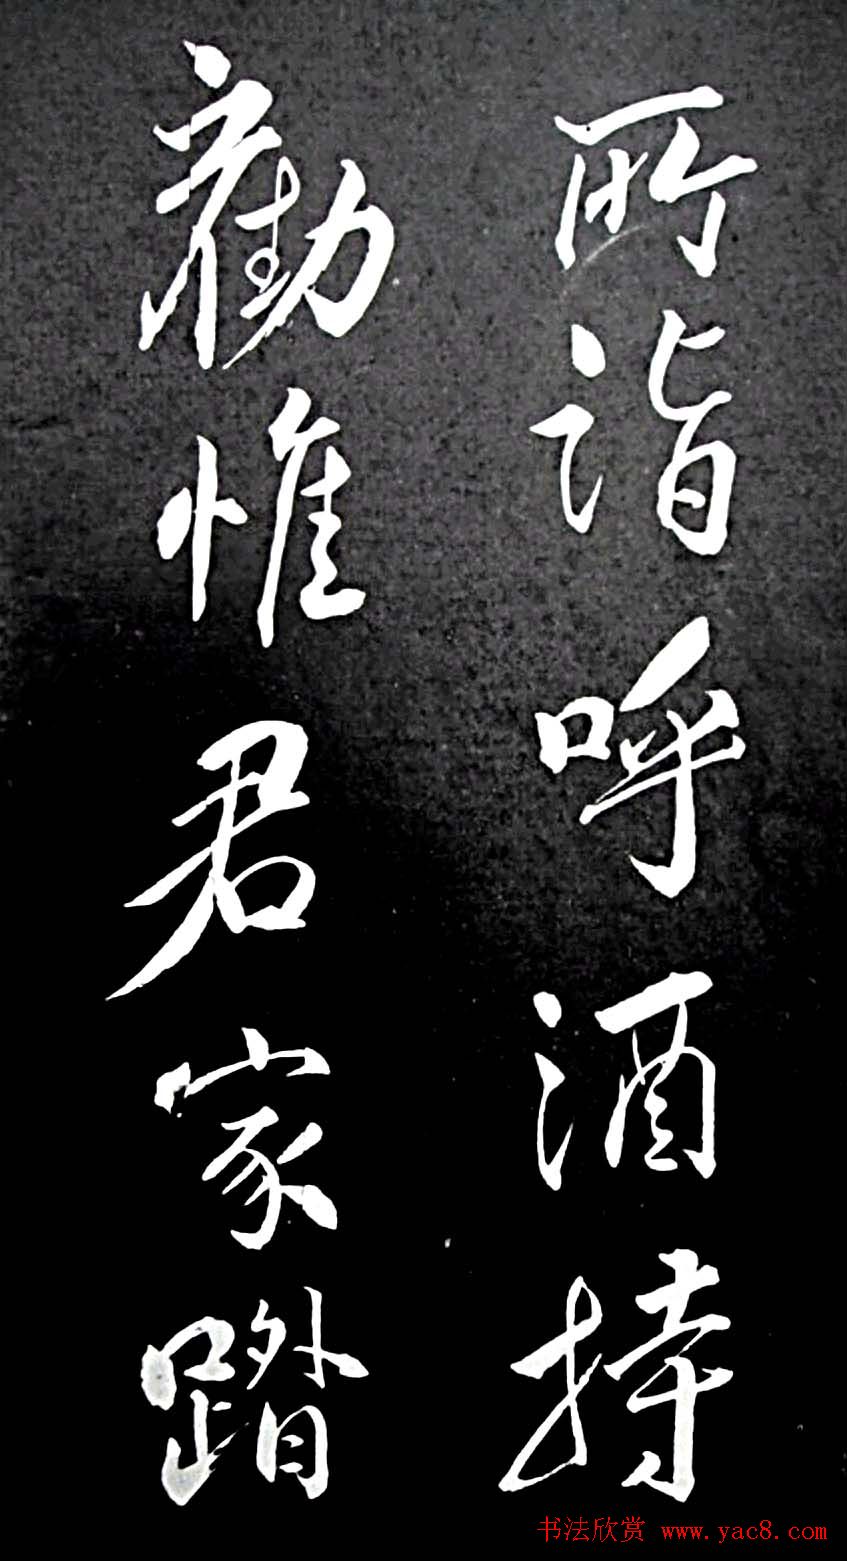 所詣呼酒持
勸惟君家踏
书法欣赏 www.yac8.com